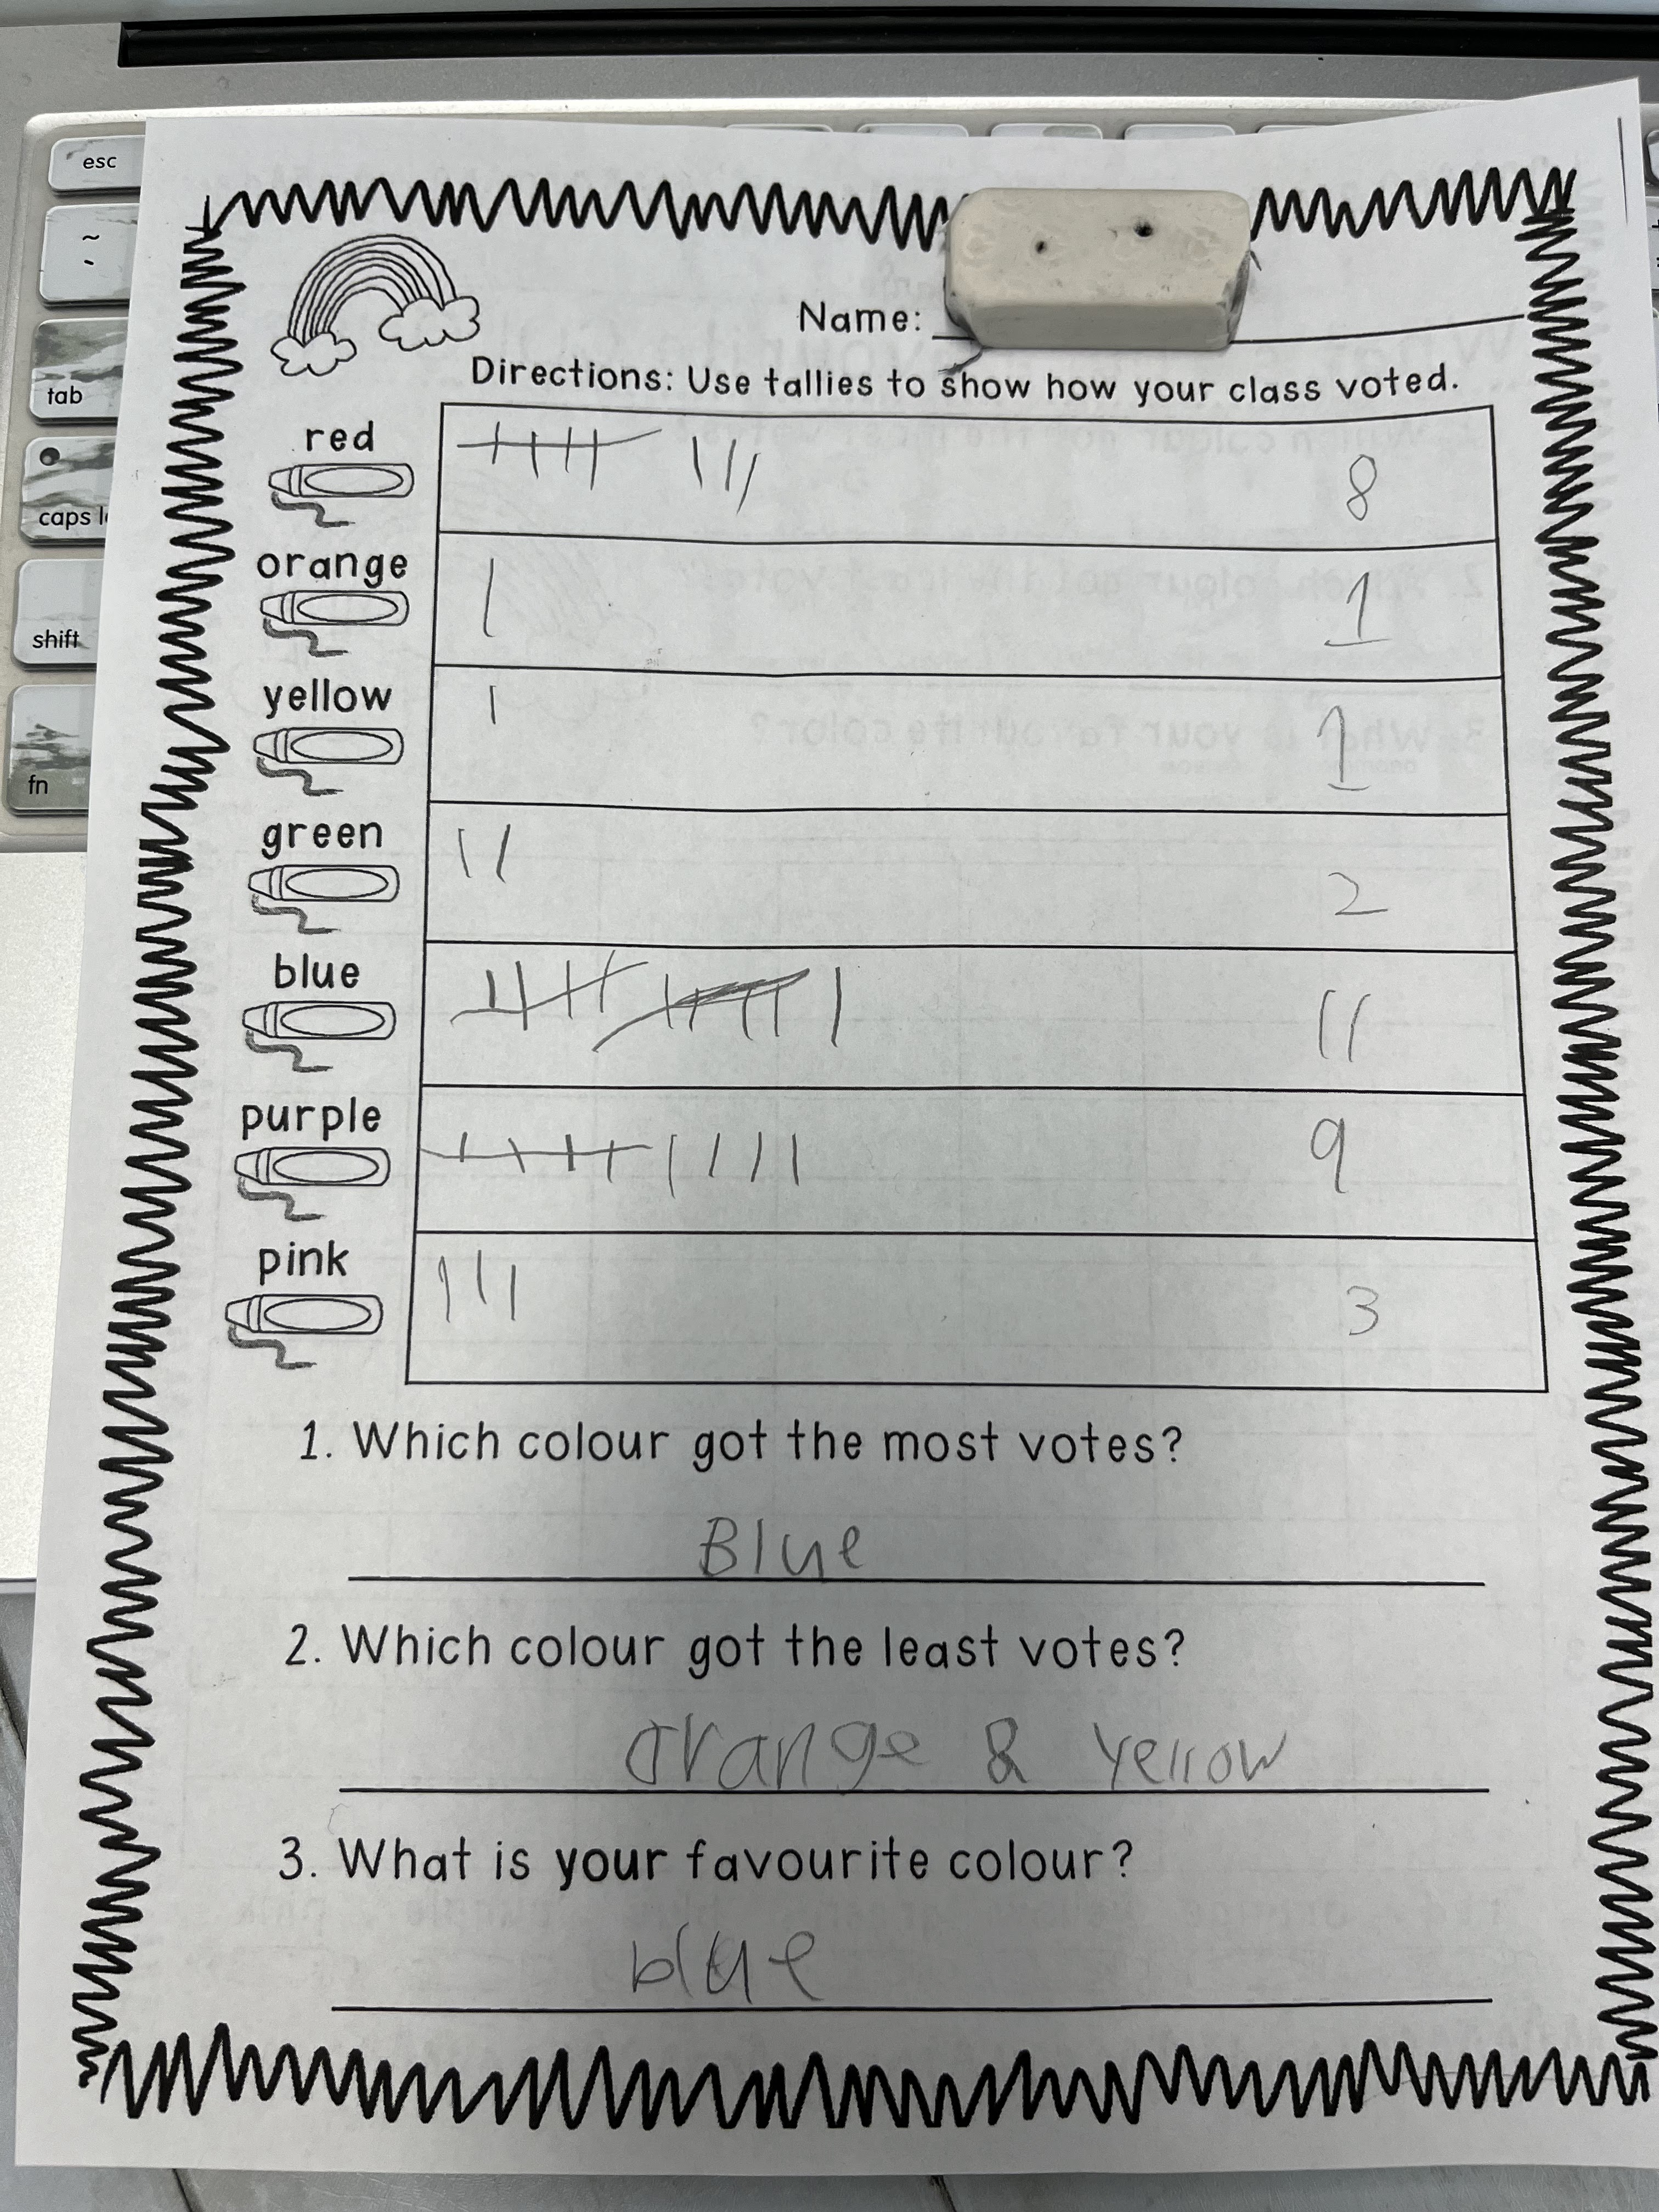 esc
~
`
tab
caps l
shift
fn
Name:
Directions: Use tallies to show how your class voted.
red 8
orange 1
yellow 1
green 2
blue 11
purple 9
pink 3
1. Which colour got the most votes?
Blue
2. Which colour got the least votes?
orange & yellow
3. What is your favourite colour?
blue